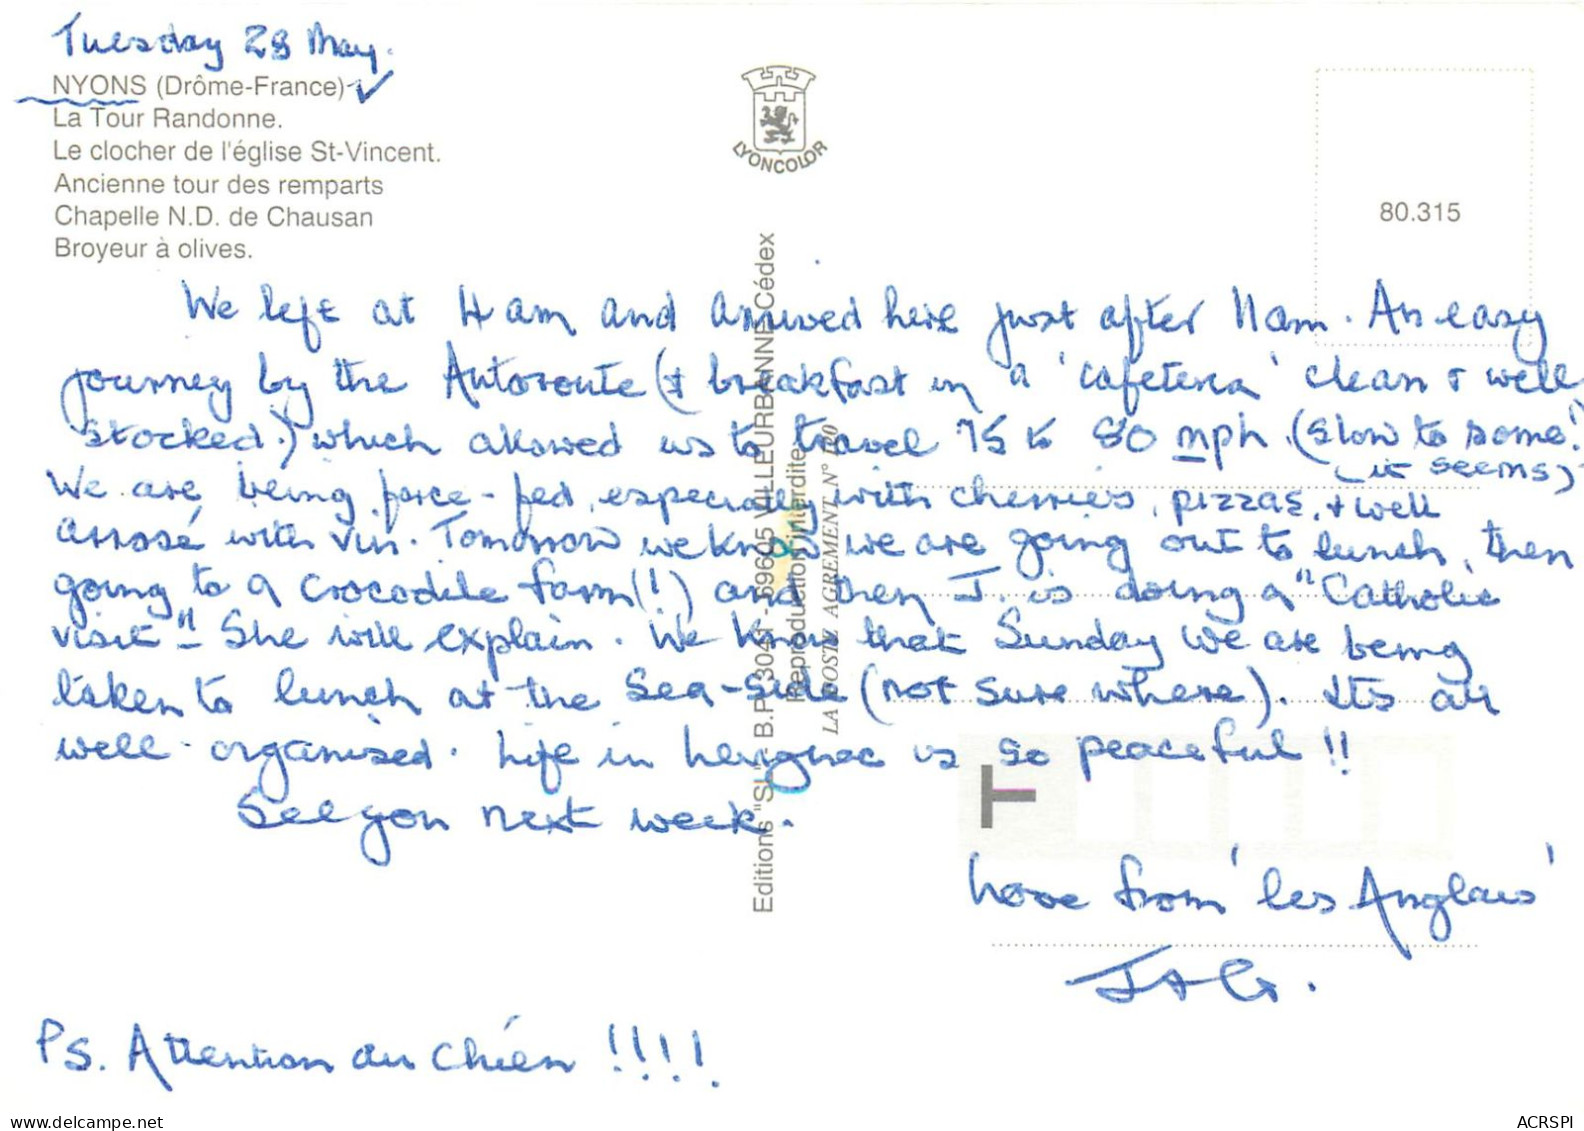 Tuesday 28 May.
NYONS (Drôme-France)
La Tour Randonne.
Le clocher de l'église St-Vincent.
Ancienne tour des remparts
Chapelle N.D. de Chausan
Broyeur à olives.
LYONCOLOR
80.315
We left at 4 am and arrived here just after 11am. An easy
journey by the Autoroute (& breakfast in a 'cafeteria' clean & well
stocked.) which allowed us to travel 75 to 80 mph. (slow to some!)
(it seems)
We are being force-fed, especially with cherries, pizzas, & well
arrosé with vin. Tomorrow we know we are going out to lunch, then
going to a crocodile farm(!) and then J. is doing a "Catholic
visit" - She will explain. We know that Sunday we are being
taken to lunch at the Sea-side (not sure where). Its all
well organised. Life in is so peaceful!!
See you next week.
Love from 'les Anglais'
J & G.
Ps. Attention au chien !!!!
Editions "SL" - B.P. 3041 - 69605 VILLEURBANNE Cédex
Reproduction interdite
LA POSTE AGREMENT N°
T
www.delcampe.net
ACRSPI